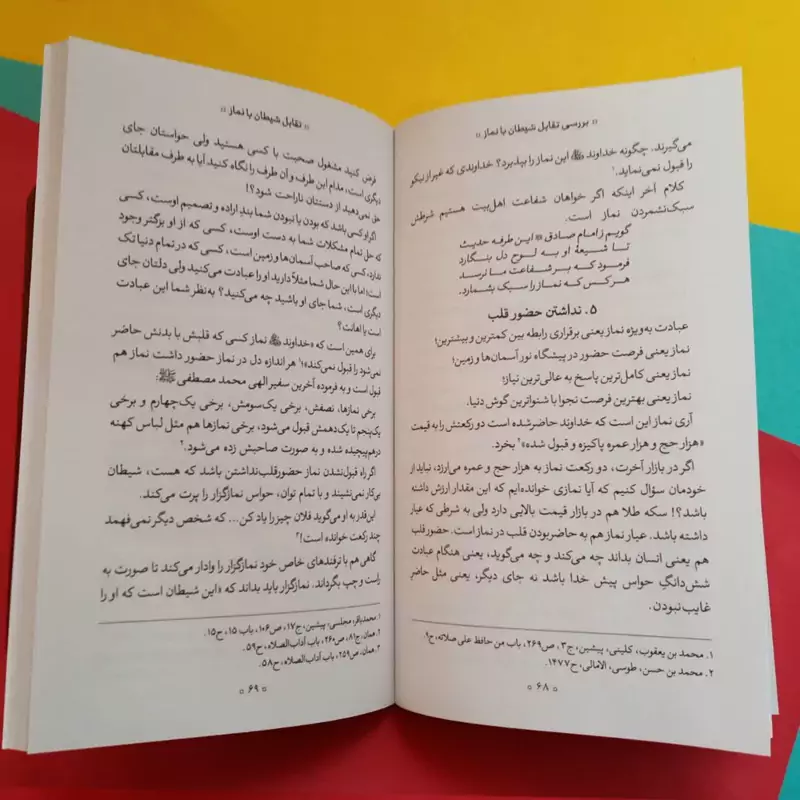 » بررسی تقابل شیطان با نماز «
می‌گیرند. چگونه خداوند ﷻ این نماز را بپذیرد؟ خداوندی که غیر از نیکو
را قبول نمی‌نماید.۱
کلام آخر اینکه اگر خواهان شفاعت اهل‌بیت هستیم شرطش
سبک‌نشمردن نماز است.
گویم ز امام صادق این طرفه حدیث
تا شیعهٔ او به لوح دل بنگارد
فرمود که بر شفاعت ما نرسد
هرکس که نماز را سبک بشمارد.
۵. نداشتن حضور قلب
عبادت به‌ویژه نماز یعنی برقراری رابطه بین کمترین و بیشترین؛
نماز یعنی فرصت حضور در پیشگاه نور آسمان‌ها و زمین؛
نماز یعنی کامل‌ترین پاسخ به عالی‌ترین نیاز؛
نماز یعنی بهترین فرصت نجوا با شنواترین گوش دنیا.
آری نماز این است که خداوند حاضر شده است دو رکعتش را به قیمت
«هزار حج و هزار عمره پاکیزه و قبول شده»۲ بخرد.
اگر در بازار آخرت، دو رکعت نماز به هزار حج و عمره می‌ارزد، نباید از
خودمان سؤال کنیم که آیا نمازی خوانده‌ایم که این مقدار ارزش داشته
باشد؟! سکه طلا هم در بازار قیمت بالایی دارد ولی به شرطی که عیار
داشته باشد. عیار نماز هم به حاضربودن قلب در نماز است. حضور قلب
هم یعنی انسان بداند چه می‌کند و چه می‌گوید، یعنی هنگام عبادت
شش‌دانگِ حواس پیش خدا باشد نه جای دیگر، یعنی مثل حاضرِ
غایب نبودن.
۱. محمد بن یعقوب، کلینی، پیشین، ج۳، ص۲۶۹، باب من حافظ علی صلاته، ح۹.
۲. محمد بن حسن، طوسی، الامالی، ح۱۴۷۷.
۶۸
» تقابل شیطان با نماز «
فرض کنید مشغول صحبت با کسی هستید ولی حواستان جای
دیگری است؛ مدام این طرف و آن طرف را نگاه کنید آیا به طرف مقابلتان
حق نمی‌دهید از دستتان ناراحت شود؟!
اگر او کسی باشد که بودن یا نبودن شما بندِ اراده و تصمیم اوست، کسی
که حل تمام مشکلات شما به دست اوست، کسی که از او بزرگتر وجود
ندارد، کسی که صاحب آسمان‌ها و زمین است، کسی که در تمام دنیا تک
است؛ اما با این حال شما مثلاً دارید او را عبادت می‌کنید ولی دلتان جای
دیگری است، شما جای او باشید چه می‌کنید؟ به‌نظر شما این عبادت
است یا اهانت؟
برای همین است که «خداوند ﷻ نماز کسی که قلبش با بدنش حاضر
نمی‌شود را قبول نمی‌کند»۱ هر اندازه دل در نماز حضور داشت نماز هم
قبول است و به فرموده آخرین سفیر الهی محمد مصطفی ﷺ:
برخی نمازها، نصفش، برخی یک‌سومش، برخی یک‌چهارم و برخی
یک‌پنجم تا یک‌دهمش قبول می‌شود، برخی نمازها هم مثل لباس کهنه
درهم‌پیچیده شده و به صورت صاحبش زده می‌شود.۲
اگر راه قبول‌نشدن نماز حضورقلب‌نداشتن باشد که هست، شیطان
بی‌کار نمی‌نشیند و با تمام توان، حواس نمازگزار را پرت می‌کند.
این‌قدر به او می‌گوید فلان چیز را یاد کن... که شخص دیگر نمی‌فهمد
چند رکعت خوانده است!۳
گاهی هم با ترفندهای خاص خود نمازگزار را وادار می‌کند تا صورت به
راست و چپ بگرداند. نمازگزار باید بداند که «این شیطان است که او را
۱. محمدباقر، مجلسی، پیشین، ج۱۷، ص۱۰۶، باب ۱۵، ح۱۵.
۲. همان، ج۸۱، ص۲۶۰، باب آداب الصلاه، ح۵۹.
۳. همان، ص۲۵۹، باب آداب الصلاه، ح۵۸.
۶۹